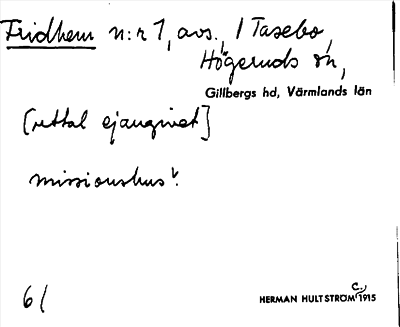 Fridhem n:r 1, avs., / Tasebo,
Högeruds sn,
Gillbergs hd, Värmlands län
[uttal ej angivet]
missionshus
6/
HERMAN HULTSTRÖM C., 1915